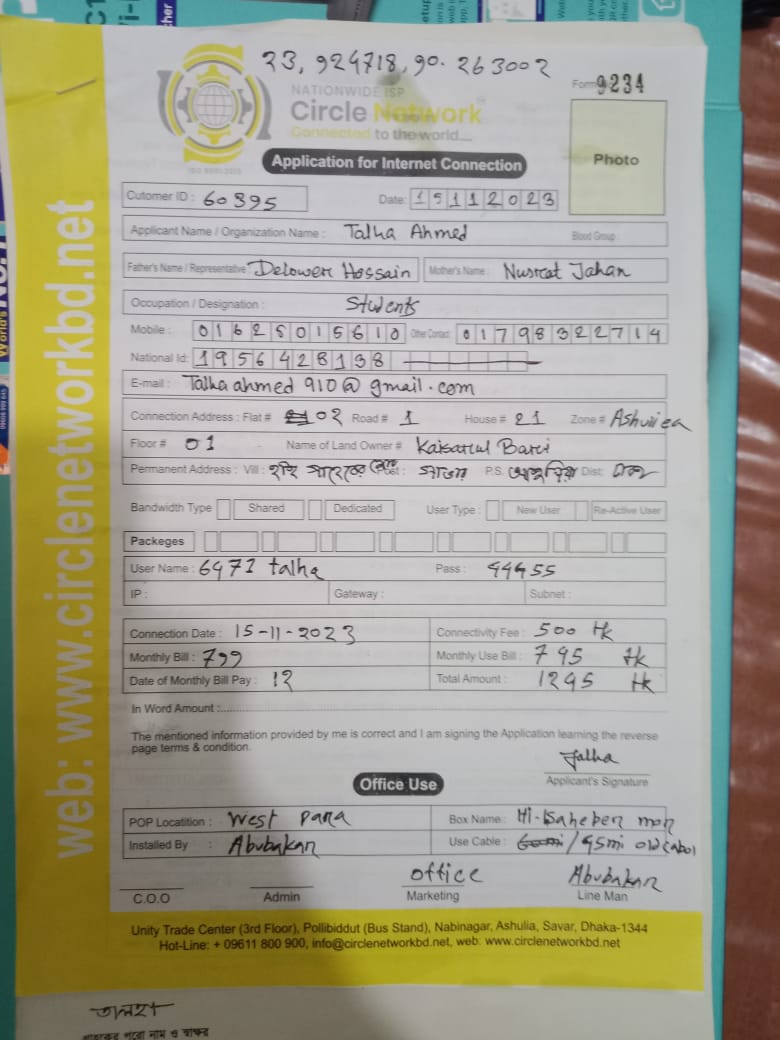 23, 924718, 90. 263002
Form 9234
NATIONWIDE ISP
Circle Network
Connected to the world....
ISO 9001:2015
Application for Internet Connection
Photo
Cutomer ID : 60895
Date: 15112023
Applicant Name / Organization Name : Talha Ahmed Blood Group
Father's Name / Representative : Delower Hossain Mother's Name : Nusrat Jahan
Occupation / Designation : Students
Mobile : 01625015610 Other Contact 01798322714
National Id: 1956428138
E-mail : Talhaahmed 910@gmail.com
Connection Address : Flat # 02 Road # 1 House # 21 Zone # Ashuliea
Floor # 01 Name of Land Owner # Kaisarul Bari
Permanent Address : Vill : P.S. Dist:
Bandwidth Type Shared Dedicated User Type : New User Re-Active User
Packeges
User Name : 6472 talha Pass : 44455
IP : Gateway : Subnet :
Connection Date : 15-11-2023 Connectivity Fee : 500 tk
Monthly Bill : 799 Monthly Use Bill : 795 tk
Date of Monthly Bill Pay : 12 Total Amount : 1295 tk
In Word Amount :
The mentioned information provided by me is correct and I am signing the Application learning the reverse
page terms & condition.
Talha
Applicant's Signature
Office Use
POP Locatition : West para Box Name : Hi-Saheber mor
Installed By : Abubakar Use Cable : /95mi old cabol
office Abubakar
C.O.O Admin Marketing Line Man
Unity Trade Center (3rd Floor), Pollibiddut (Bus Stand), Nabinagar, Ashulia, Savar, Dhaka-1344
Hot-Line: + 09611 800 900, info@circlenetworkbd.net, web: www.circlenetworkbd.net
web: www.circlenetworkbd.net
তালহা